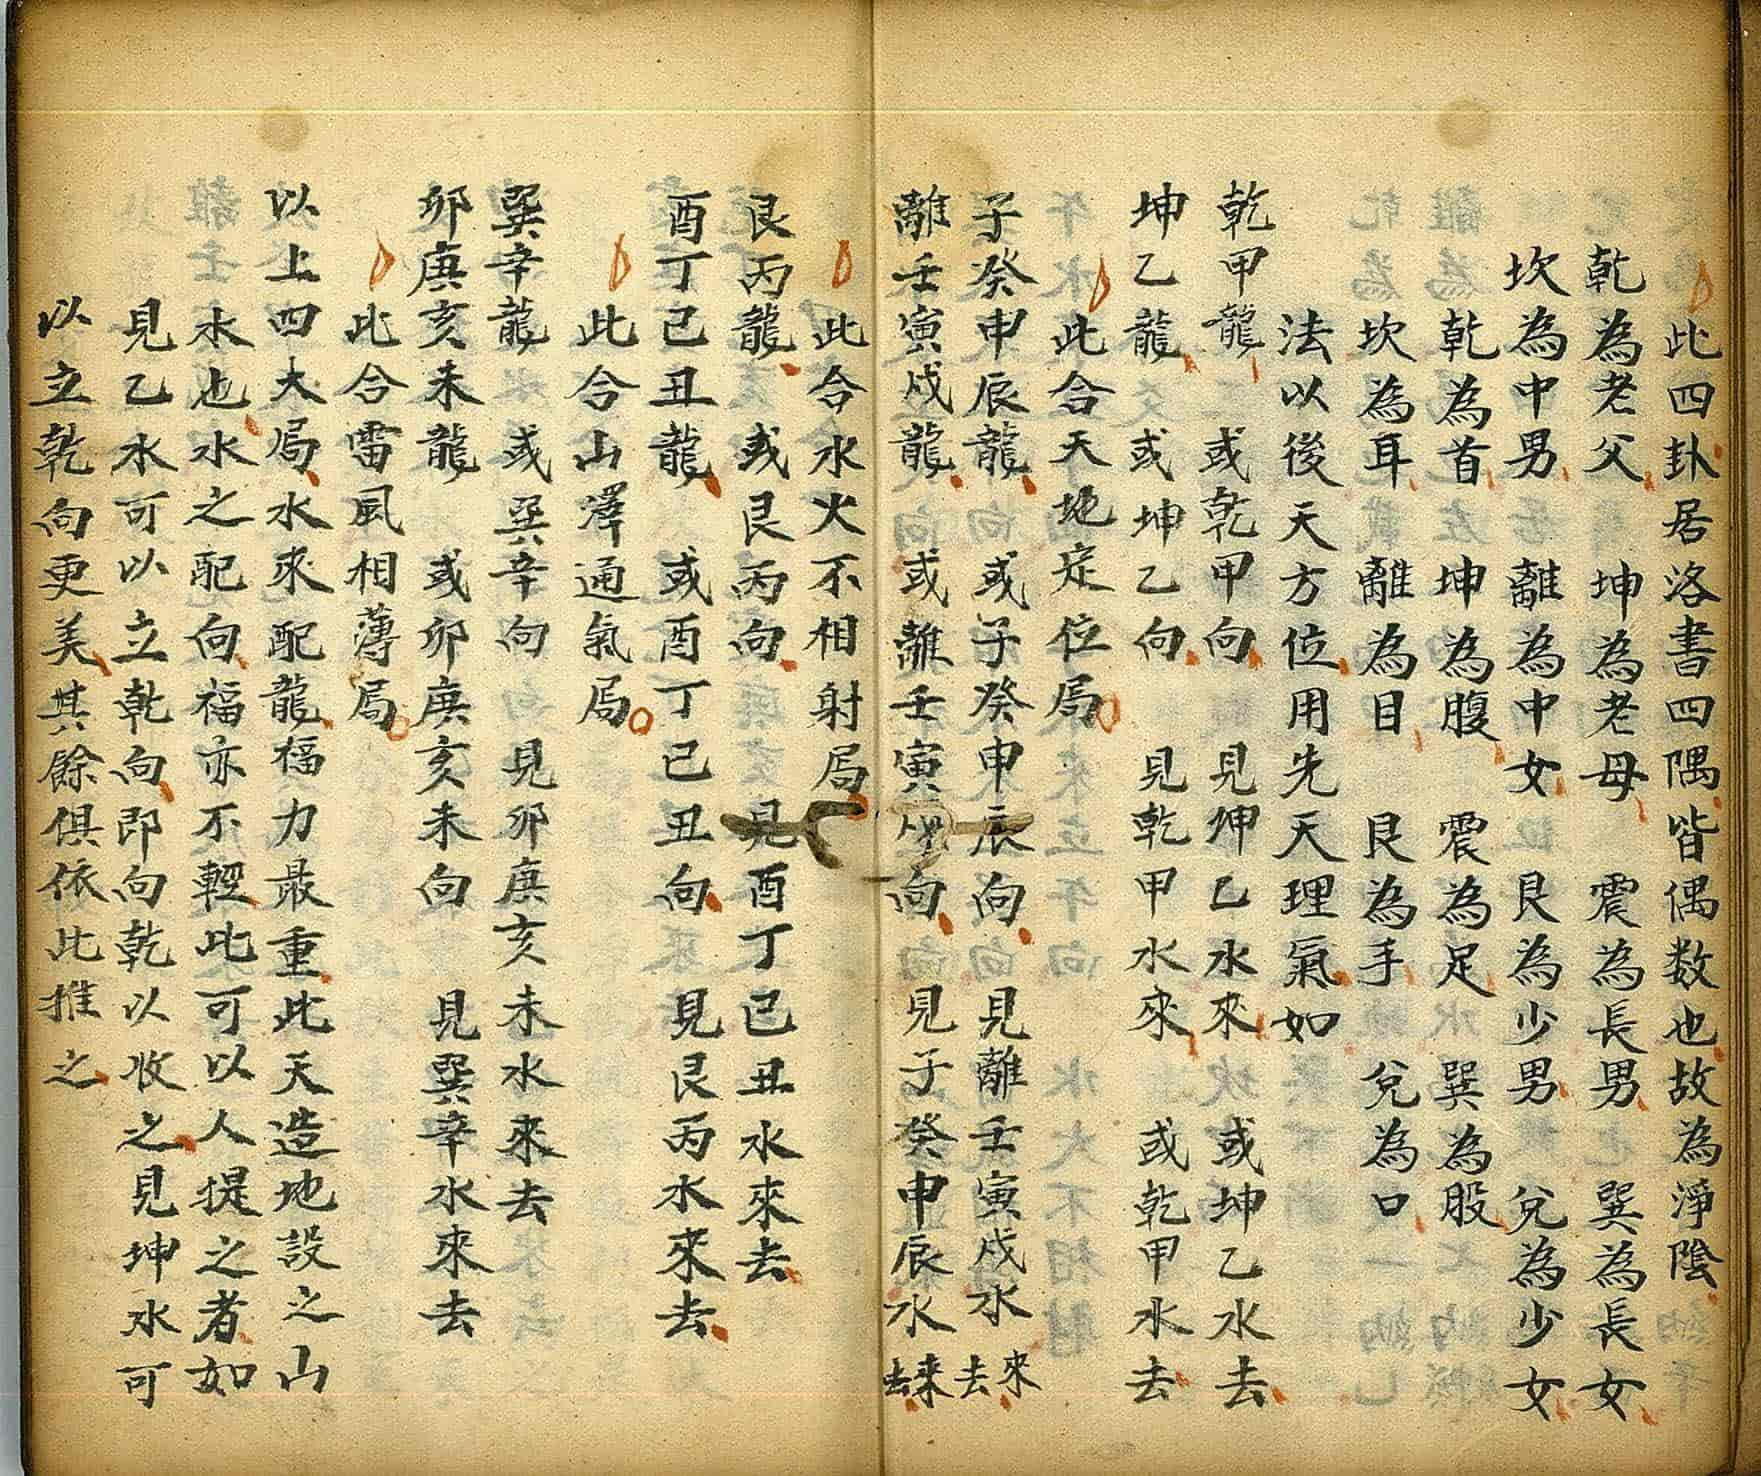 此四卦居洛書四隅皆偶数也故為淨陰
乾為老父 坤為老母 震為長男 巽為長女
坎為中男 離為中女 艮為少男 兌為少女
乾為首 坤為腹 震為足 巽為股
坎為耳 離為目 艮為手 兌為口
法以後天方位用先天理氣如
乾甲龍 或乾甲向 見坤乙水來 或坤乙水去
坤乙龍 或坤乙向 見乾甲水來 或乾甲水去
此合天地定位局
子癸申辰龍 或子癸申辰向 見離壬寅戌水來去
離壬寅戌龍 或離壬寅戌向 見子癸申辰水来去
此合水火不相射局
艮丙龍 或艮丙向 見酉丁己丑水來去
酉丁己丑龍 或酉丁己丑向 見艮丙水來去
此合山澤通氣局
巽辛龍 或巽辛向 見卯庚亥未水來去
卯庚亥未龍 或卯庚亥未向 見巽辛水來去
此合雷風相薄局
以上四大局水來配龍福力最重此天造地設之山
水也水之配向福亦不輕此可以人提之者如
見乙水可以立乾向即向乾以收之見坤水可
以立乾向更美其餘俱依此推之